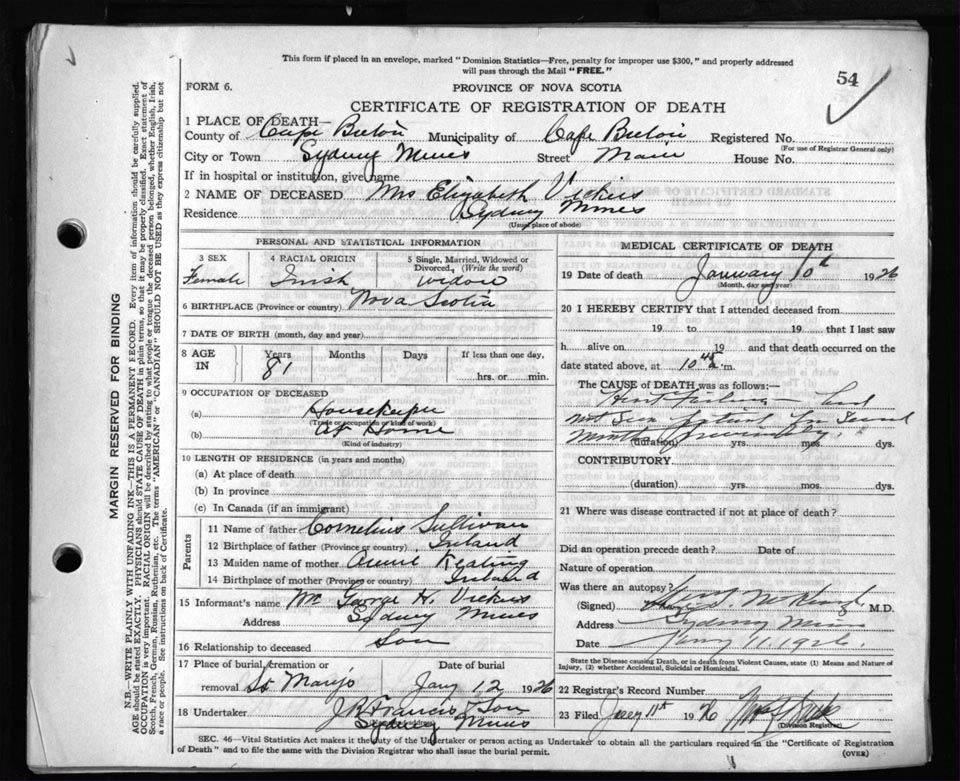 This form if placed in an envelope, marked "Dominion Statistics—Free, penalty for improper use $300," and properly addressed
will pass through the Mail "FREE."
54
FORM 6.
PROVINCE OF NOVA SCOTIA
CERTIFICATE OF REGISTRATION OF DEATH
1 PLACE OF DEATH—
County of Cape Breton Municipality of Cape Breton Registered No.
(For use of Registrar General only)
City or Town Sydney Mines Street Main House No.
If in hospital or institution, give name
2 NAME OF DECEASED Mrs Elizabeth Vickers
Residence Sydney Mines
(Usual place of abode)
PERSONAL AND STATISTICAL INFORMATION
3 SEX 4 RACIAL ORIGIN 5 Single, Married, Widowed or
Divorced, (Write the word)
Female Irish widow
6 BIRTHPLACE (Province or country) Nova Scotia
7 DATE OF BIRTH (month, day and year)
8 AGE IN Years Months Days If less than one day,
81 hrs. or min.
9 OCCUPATION OF DECEASED
(a) Housekeeper
(Trade or occupation or kind of work)
(b) at Home
(Kind of industry)
10 LENGTH OF RESIDENCE (in years and months)
(a) At place of death
(b) In province
(c) In Canada (if an immigrant)
Parents
11 Name of father Cornelius Sullivan
12 Birthplace of father (Province or country) Ireland
13 Maiden name of mother Annie Keating
14 Birthplace of mother (Province or country) Ireland
15 Informant's name Mr George H. Vickers
Address Sydney Mines
16 Relationship to deceased Son
17 Place of burial cremation or Date of burial
removal St Mary's Jany 12 1926
18 Undertaker J R Francis & Son
Sydney Mines
MEDICAL CERTIFICATE OF DEATH
19 Date of death January 10th 1926
(Month, day and year)
20 I HEREBY CERTIFY that I attended deceased from
19 to 19 that I last saw
h alive on 19 and that death occurred on the
date stated above, at 10 45 m.
The CAUSE of DEATH was as follows:—
Heart Failure had
not seen patient for several
months previously
(duration) yrs. mos. dys.
CONTRIBUTORY
(duration) yrs. mos. dys.
21 Where was disease contracted if not at place of death?
Did an operation precede death? Date of
Nature of operation
Was there an autopsy?
(Signed) M.D.
Address Sydney Mines
Date Jany 11. 1926.
State the Disease causing Death, or in death from Violent Causes, state (1) Means and Nature of
Injury, (2) whether Accidental, Suicidal or Homicidal.
22 Registrar's Record Number
23 Filed Jany 11th 1926
(Division Registrar)
SEC. 46—Vital Statistics Act makes it the duty of the Undertaker or person acting as Undertaker to obtain all the particulars required in the "Certificate of Registration
of Death" and to file the same with the Division Registrar who shall issue the burial permit.
(OVER)
MARGIN RESERVED FOR BINDING
N.B.—WRITE PLAINLY WITH UNFADING INK—THIS IS A PERMANENT RECORD. Every item of information should be carefully supplied.
AGE should be stated EXACTLY. PHYSICIANS should STATE CAUSE OF DEATH in plain terms, so that it may be properly classified. Exact statement of
OCCUPATION is very important. RACIAL ORIGIN will be described by stating to what people or tongue the deceased person belonged, whether English, Irish,
Scotch, French, German, Russian, Ruthenian, etc. The terms "AMERICAN" or "CANADIAN" SHOULD NOT BE USED as they express citizenship but not
a race or people. See instructions on back of Certificate.